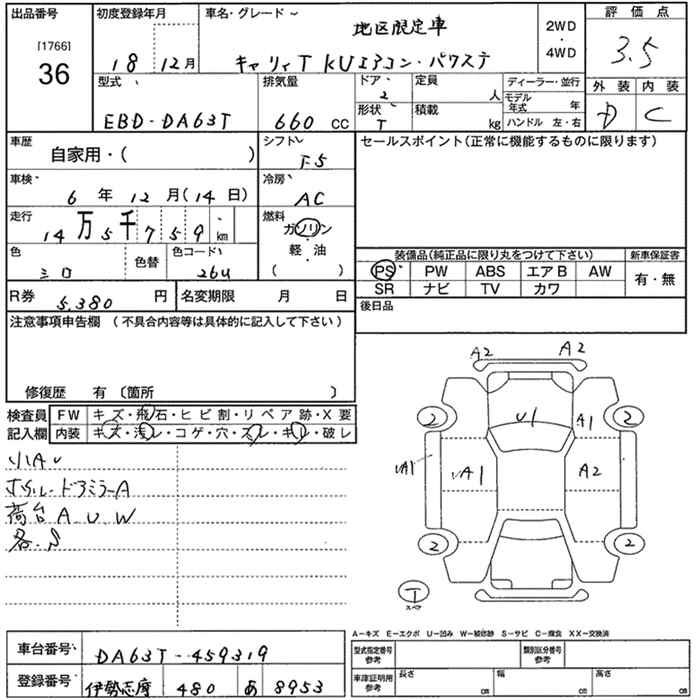 出品番号
[1766]
36
初度登録年月
18 12月
車名・グレード
地区限定車
キャリィT KUエアコン・パワステ
2WD
・
4WD
評価点
3.5
外装 内装
D C
型式
EBD-DA63T
排気量
660 CC
ドア
2
形状
T
定員
人
積載
kg
ディーラー・並行
モデル年式 年
ハンドル 左・右
車歴
自家用・( )
シフト
F5
セールスポイント(正常に機能するものに限ります)
車検
6年12月(14日)
冷房
AC
走行
14万5千759 km
燃料
ガソリン
・
軽・油
( )
色
シロ
色替
色コード
26U
装備品(純正品に限り丸をつけて下さい)
PS PW ABS エアB AW
SR ナビ TV カワ
新車保証書
有・無
R券
5,380 円
名変期限 月 日
後日品
注意事項申告欄 (不具合内容等は具体的に記入して下さい)
修復歴 有 〔箇所 〕
検査員記入欄
FW キズ・飛石・ヒビ割・リペア跡・X要
内装 キズ・汚レ・コゲ・穴・スレ・キレ・破レ
小AU
ドアミラーA
荷台A.U.W
各.S
A2 A2
2 U1 A1 2
A1 A1 A2
2 2
T
スペア
A-キズ E-エクボ U-凹み W-補修跡 S-サビ C-腐食 XX-交換済
車台番号
DA63T-459319
登録番号
伊勢志摩 480 あ 8953
型式指定番号
参考
類別区分番号
参考
車庫証明用
参考
長さ cm
幅 cm
高さ cm